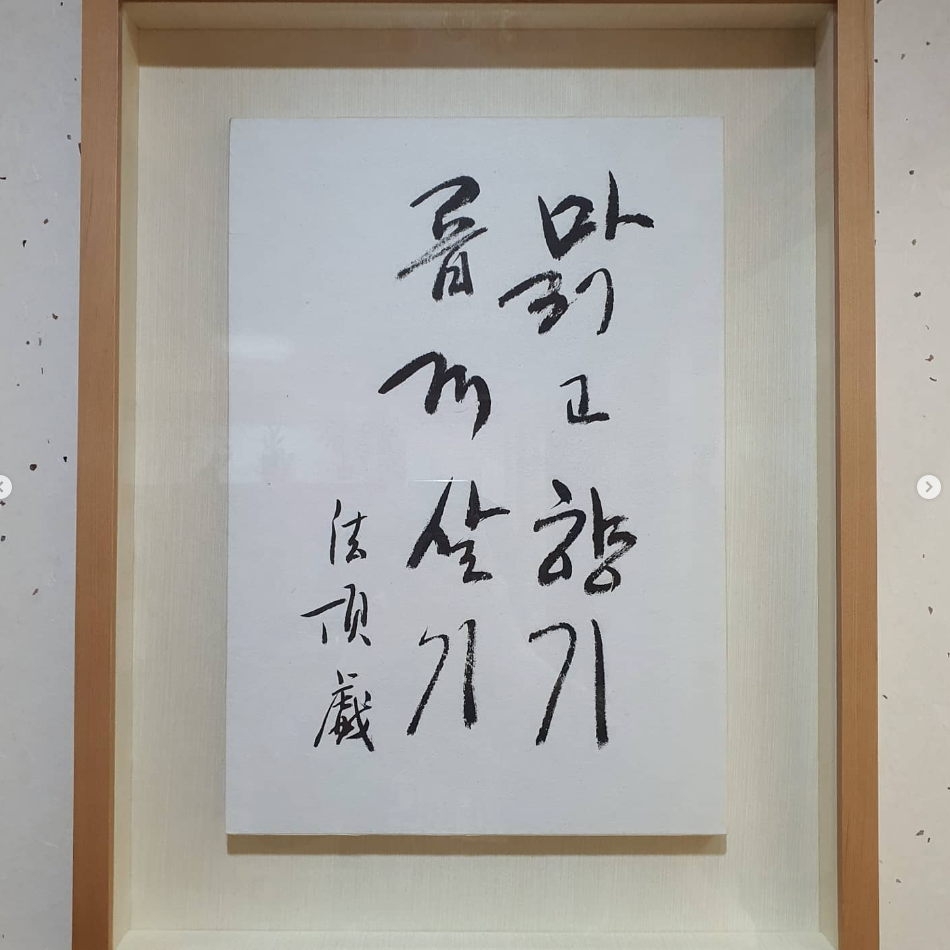 맑고향기
롭게살기
法頂戱